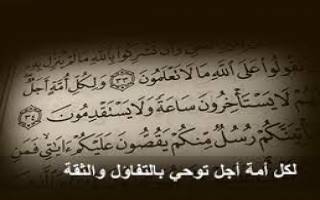 تَقُولُوا عَلَى اللَّهِ مَا لَا تَعْلَمُونَ ٣٣ وَلِكُلِّ أُمَّةٍ أَجَلٌ
لَا يَسْتَأْخِرُونَ سَاعَةً وَلَا يَسْتَقْدِمُونَ ٣٤
يَأْتِيَنَّكُمْ رُسُلٌ مِّنكُمْ يَقُصُّونَ عَلَيْكُمْ ءَايَاتِي فَمَنِ
لكل أمة أجل توحي بالتفاؤل والثقة